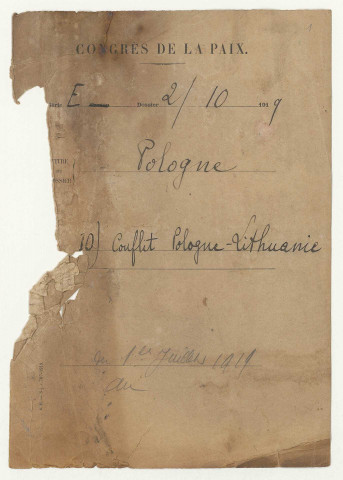 CONGRÈS DE LA PAIX.
Série E Dossier 2/10 1919
TITRE
du
DOSSIER
Pologne
10) Conflit Pologne-Lithuanie
du 1er Juillet 1919
au